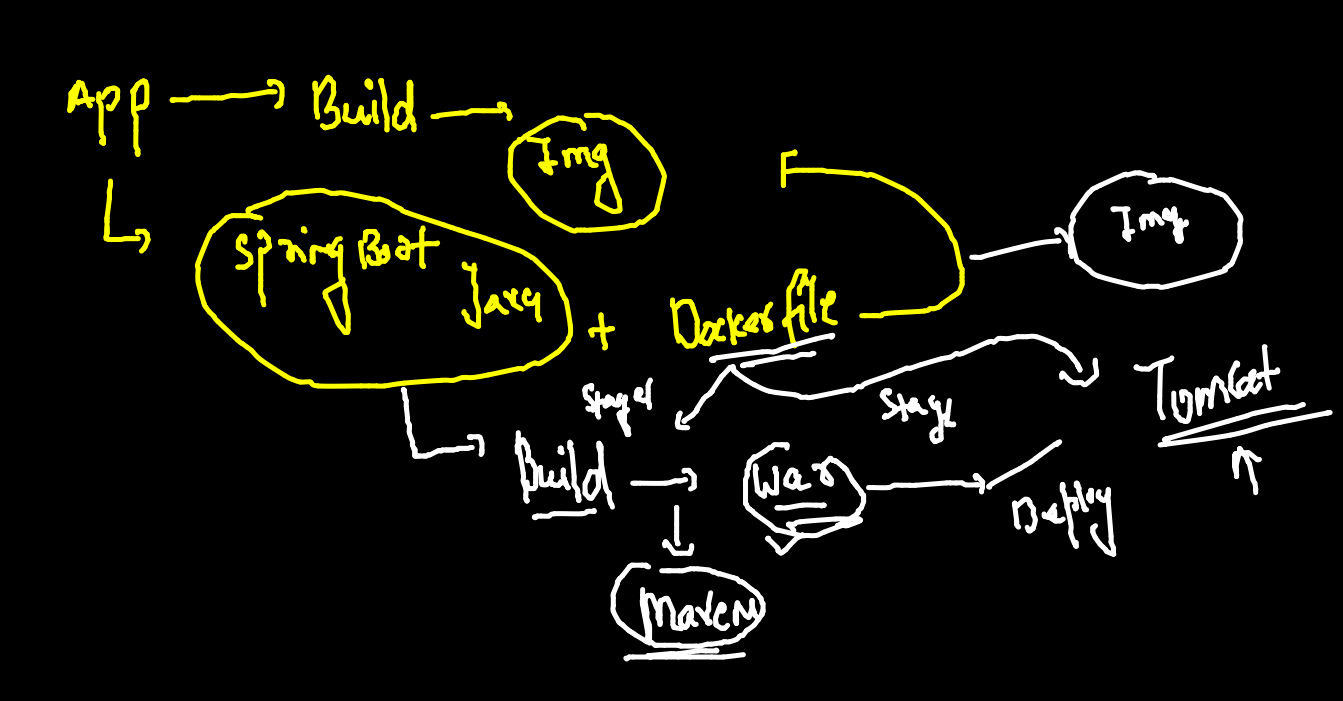 App Build
Img
Img
Spring Boot
Java
+ Docker file
Stage1
Stage
Tomcat
Build
War
Deploy
Maven